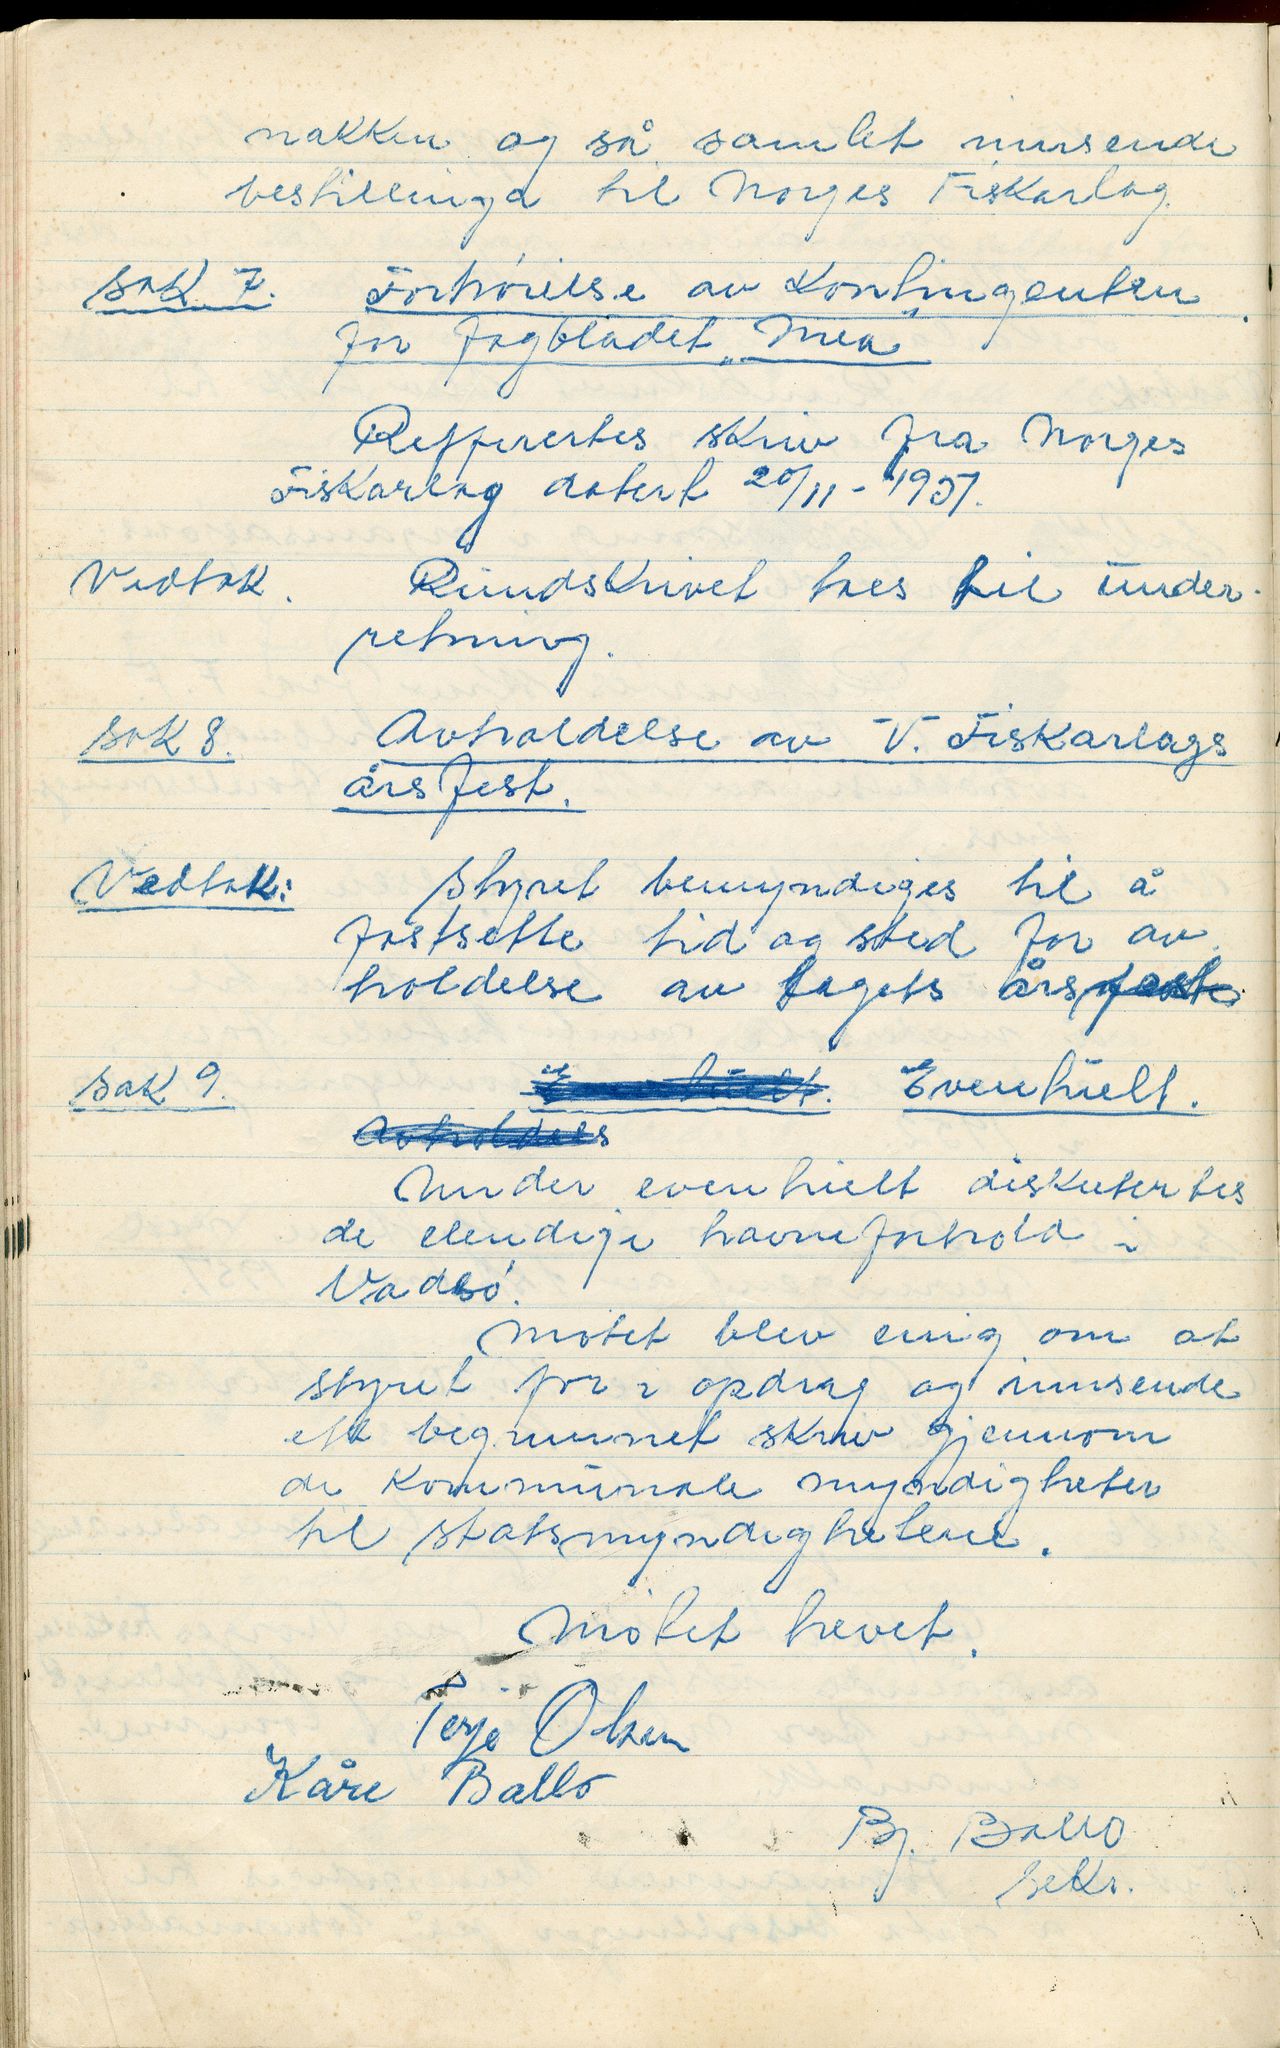 nakken og så samlet innsende
bestillinga til Norges Fiskarlag.
sak 7. Forhøielse av Kontingenten
for fagbladet "Mea"
Reffirertes skriv fra Norges
Fiskarlag datert 20/11-1957.
Vedtak. Rundskrivet taes til under-
retning.
sak 8. Avholdelse av V. Fiskarlags
årsfest.
Vedtak: Styret bemyndiges til å
fastsette tid og sted for av
holdelse av lagets årsfest.
sak 9. Eventuelt.
Under eventuelt diskutertes
de elendige havneforhold i
Vadsø.
Møtet blev enig om at
styret for i opdrag og innsende
ett begrunnet skriv gjennom
de kommunale myndigheter
til statsmyndighetene.
Møtet hevet.
Terje Olsen
Kåre Ballo
Bj. Ballo
sekr.